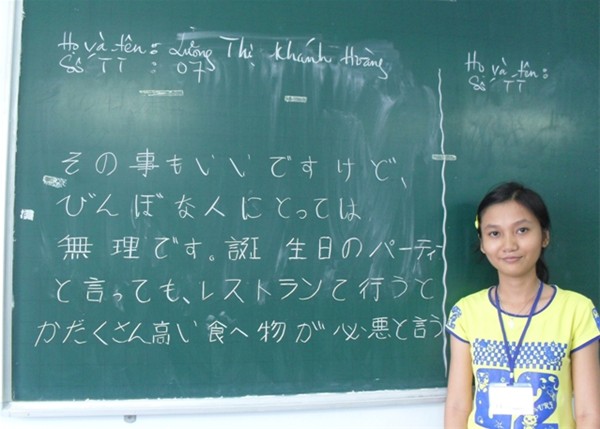 Họ và tên : Lường Thị Khánh Hoàng
Số TT : 07
Họ và tên :
Số TT :
その事もいいですけど、
びんぼな人にとっては
無理です。誕生日のパーティー
と言っても、レストランて行うと
かだくさん高い食へ物が必悪と言う